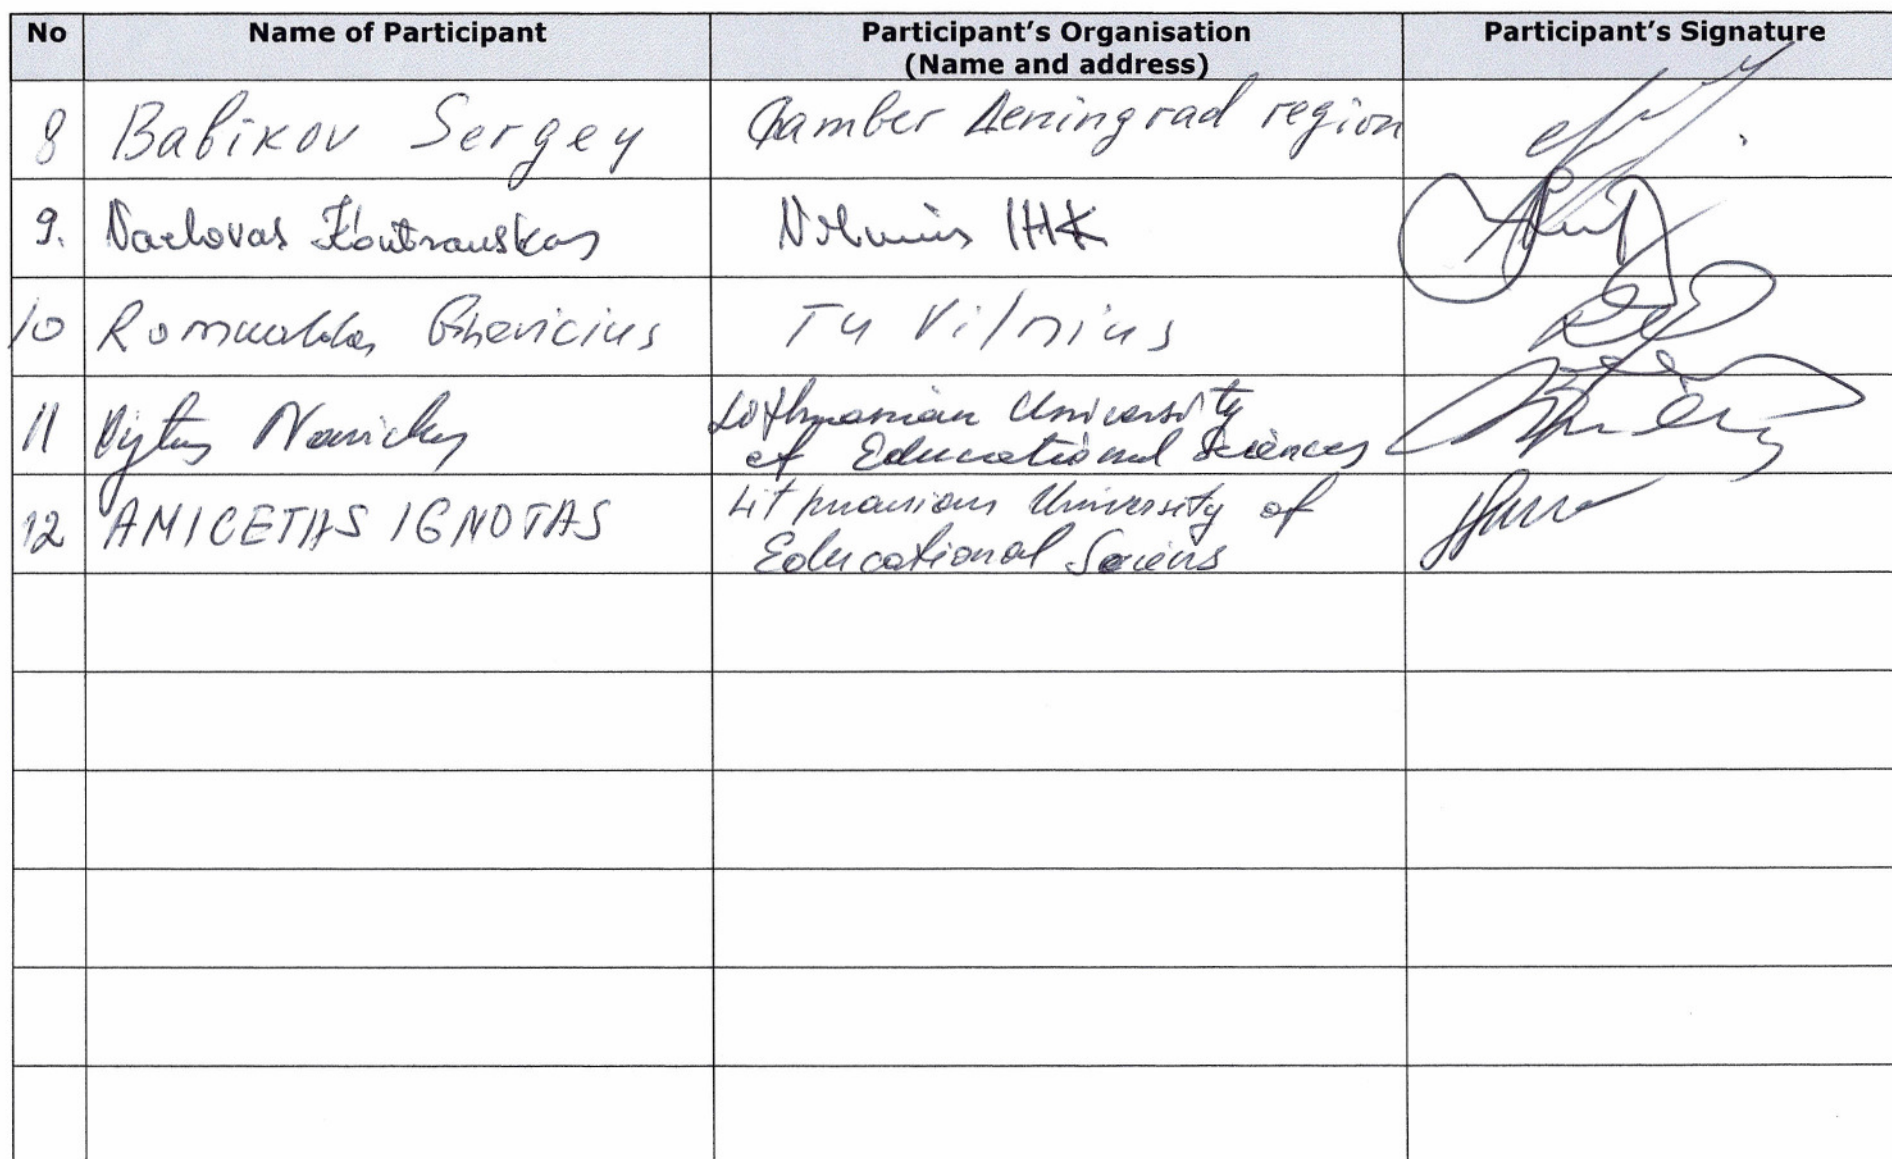 No Name of Participant Participant's Organisation Participant's Signature
(Name and address)
8 Babikov Sergey Chamber Leningrad region
9. Vaclovas Kontrauskas Vilnius IHK
10 Romualdas TU Vilnius
11 Vytas Navickas Lithuanian University
of Educational Sciences
12 AMICETAS IGNOTAS Lithuanian University of
Educational Sciens